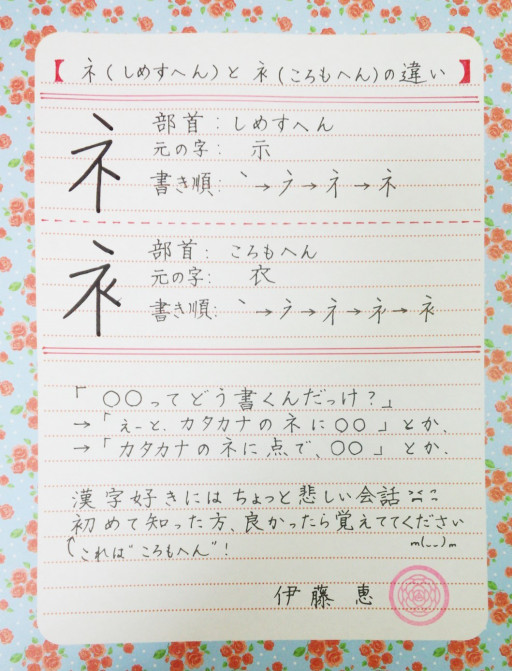 【 ネ(しめすへん)と ネ(ころもへん)の違い 】
ネ
部首:しめすへん
元の字: 示
書き順: 丶→ラ→ネ→ネ
衤
部首: ころもへん
元の字: 衣
書き順: 丶→ラ→ネ→ネ→衤
「 〇〇ってどう書くんだっけ?」
→「えーと、カタカナのネに〇〇 」とか、
→「カタカナのネに点で、〇〇 」とか、
漢字好きにはちょっと悲しい会話
初めて知った方、良かったら覚えててください
これは"ころもへん"!
m(__)m
伊藤 恵